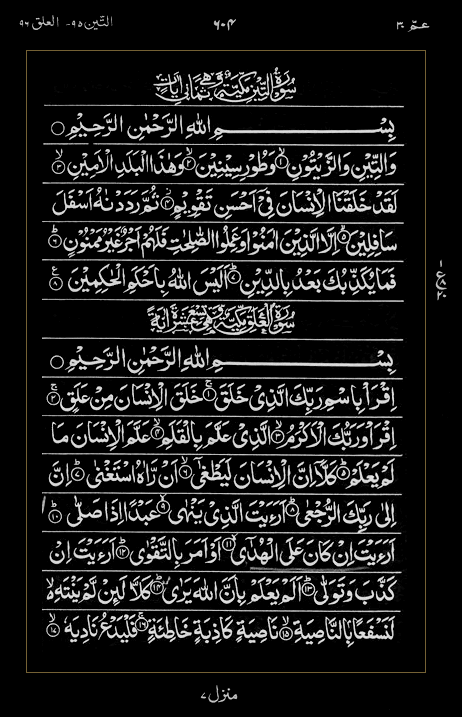 عمّ ٣٠ ٦٠٤ التّين ٩٥- العلق ٩٦
سُوْرَةُ التِّيْنِ مَكِّيَّةٌ وَّهِيَ ثَمَانِيْ اٰيَاتٍ
بِسْمِ اللّٰهِ الرَّحْمٰنِ الرَّحِيْمِ ۝
وَالتِّيْنِ وَالزَّيْتُوْنِ ۝١ وَطُوْرِ سِيْنِيْنَ ۝٢ وَهٰذَا الْبَلَدِ الْاَمِيْنِ ۝٣
لَقَدْ خَلَقْنَا الْاِنْسَانَ فِيْٓ اَحْسَنِ تَقْوِيْمٍ ۝٤ ثُمَّ رَدَدْنٰهُ اَسْفَلَ
سَافِلِيْنَ ۝٥ اِلَّا الَّذِيْنَ اٰمَنُوْا وَعَمِلُوا الصّٰلِحٰتِ فَلَهُمْ اَجْرٌ غَيْرُ مَمْنُوْنٍ ۝٦
فَمَا يُكَذِّبُكَ بَعْدُ بِالدِّيْنِ ۝٧ اَلَيْسَ اللّٰهُ بِاَحْكَمِ الْحٰكِمِيْنَ ۝٨
سُوْرَةُ الْعَلَقِ مَكِّيَّةٌ وَّهِيَ تِسْعَ عَشْرَةَ اٰيَةً
بِسْمِ اللّٰهِ الرَّحْمٰنِ الرَّحِيْمِ ۝
اِقْرَاْ بِاسْمِ رَبِّكَ الَّذِيْ خَلَقَ ۝١ خَلَقَ الْاِنْسَانَ مِنْ عَلَقٍ ۝٢
اِقْرَاْ وَرَبُّكَ الْاَكْرَمُ ۝٣ الَّذِيْ عَلَّمَ بِالْقَلَمِ ۝٤ عَلَّمَ الْاِنْسَانَ مَا
لَمْ يَعْلَمْ ۝٥ كَلَّآ اِنَّ الْاِنْسَانَ لَيَطْغٰٓى ۝٦ اَنْ رَّاٰهُ اسْتَغْنٰى ۝٧ اِنَّ
اِلٰى رَبِّكَ الرُّجْعٰى ۝٨ اَرَءَيْتَ الَّذِيْ يَنْهٰى ۝٩ عَبْدًا اِذَا صَلّٰى ۝١٠
اَرَءَيْتَ اِنْ كَانَ عَلَى الْهُدٰٓى ۝١١ اَوْ اَمَرَ بِالتَّقْوٰى ۝١٢ اَرَءَيْتَ اِنْ
كَذَّبَ وَتَوَلّٰى ۝١٣ اَلَمْ يَعْلَمْ بِاَنَّ اللّٰهَ يَرٰى ۝١٤ كَلَّا لَئِنْ لَّمْ يَنْتَهِ ۙ
لَنَسْفَعًا بِالنَّاصِيَةِ ۝١٥ نَاصِيَةٍ كَاذِبَةٍ خَاطِئَةٍ ۝١٦ فَلْيَدْعُ نَادِيَهٗ ۝١٧
منزل ٧